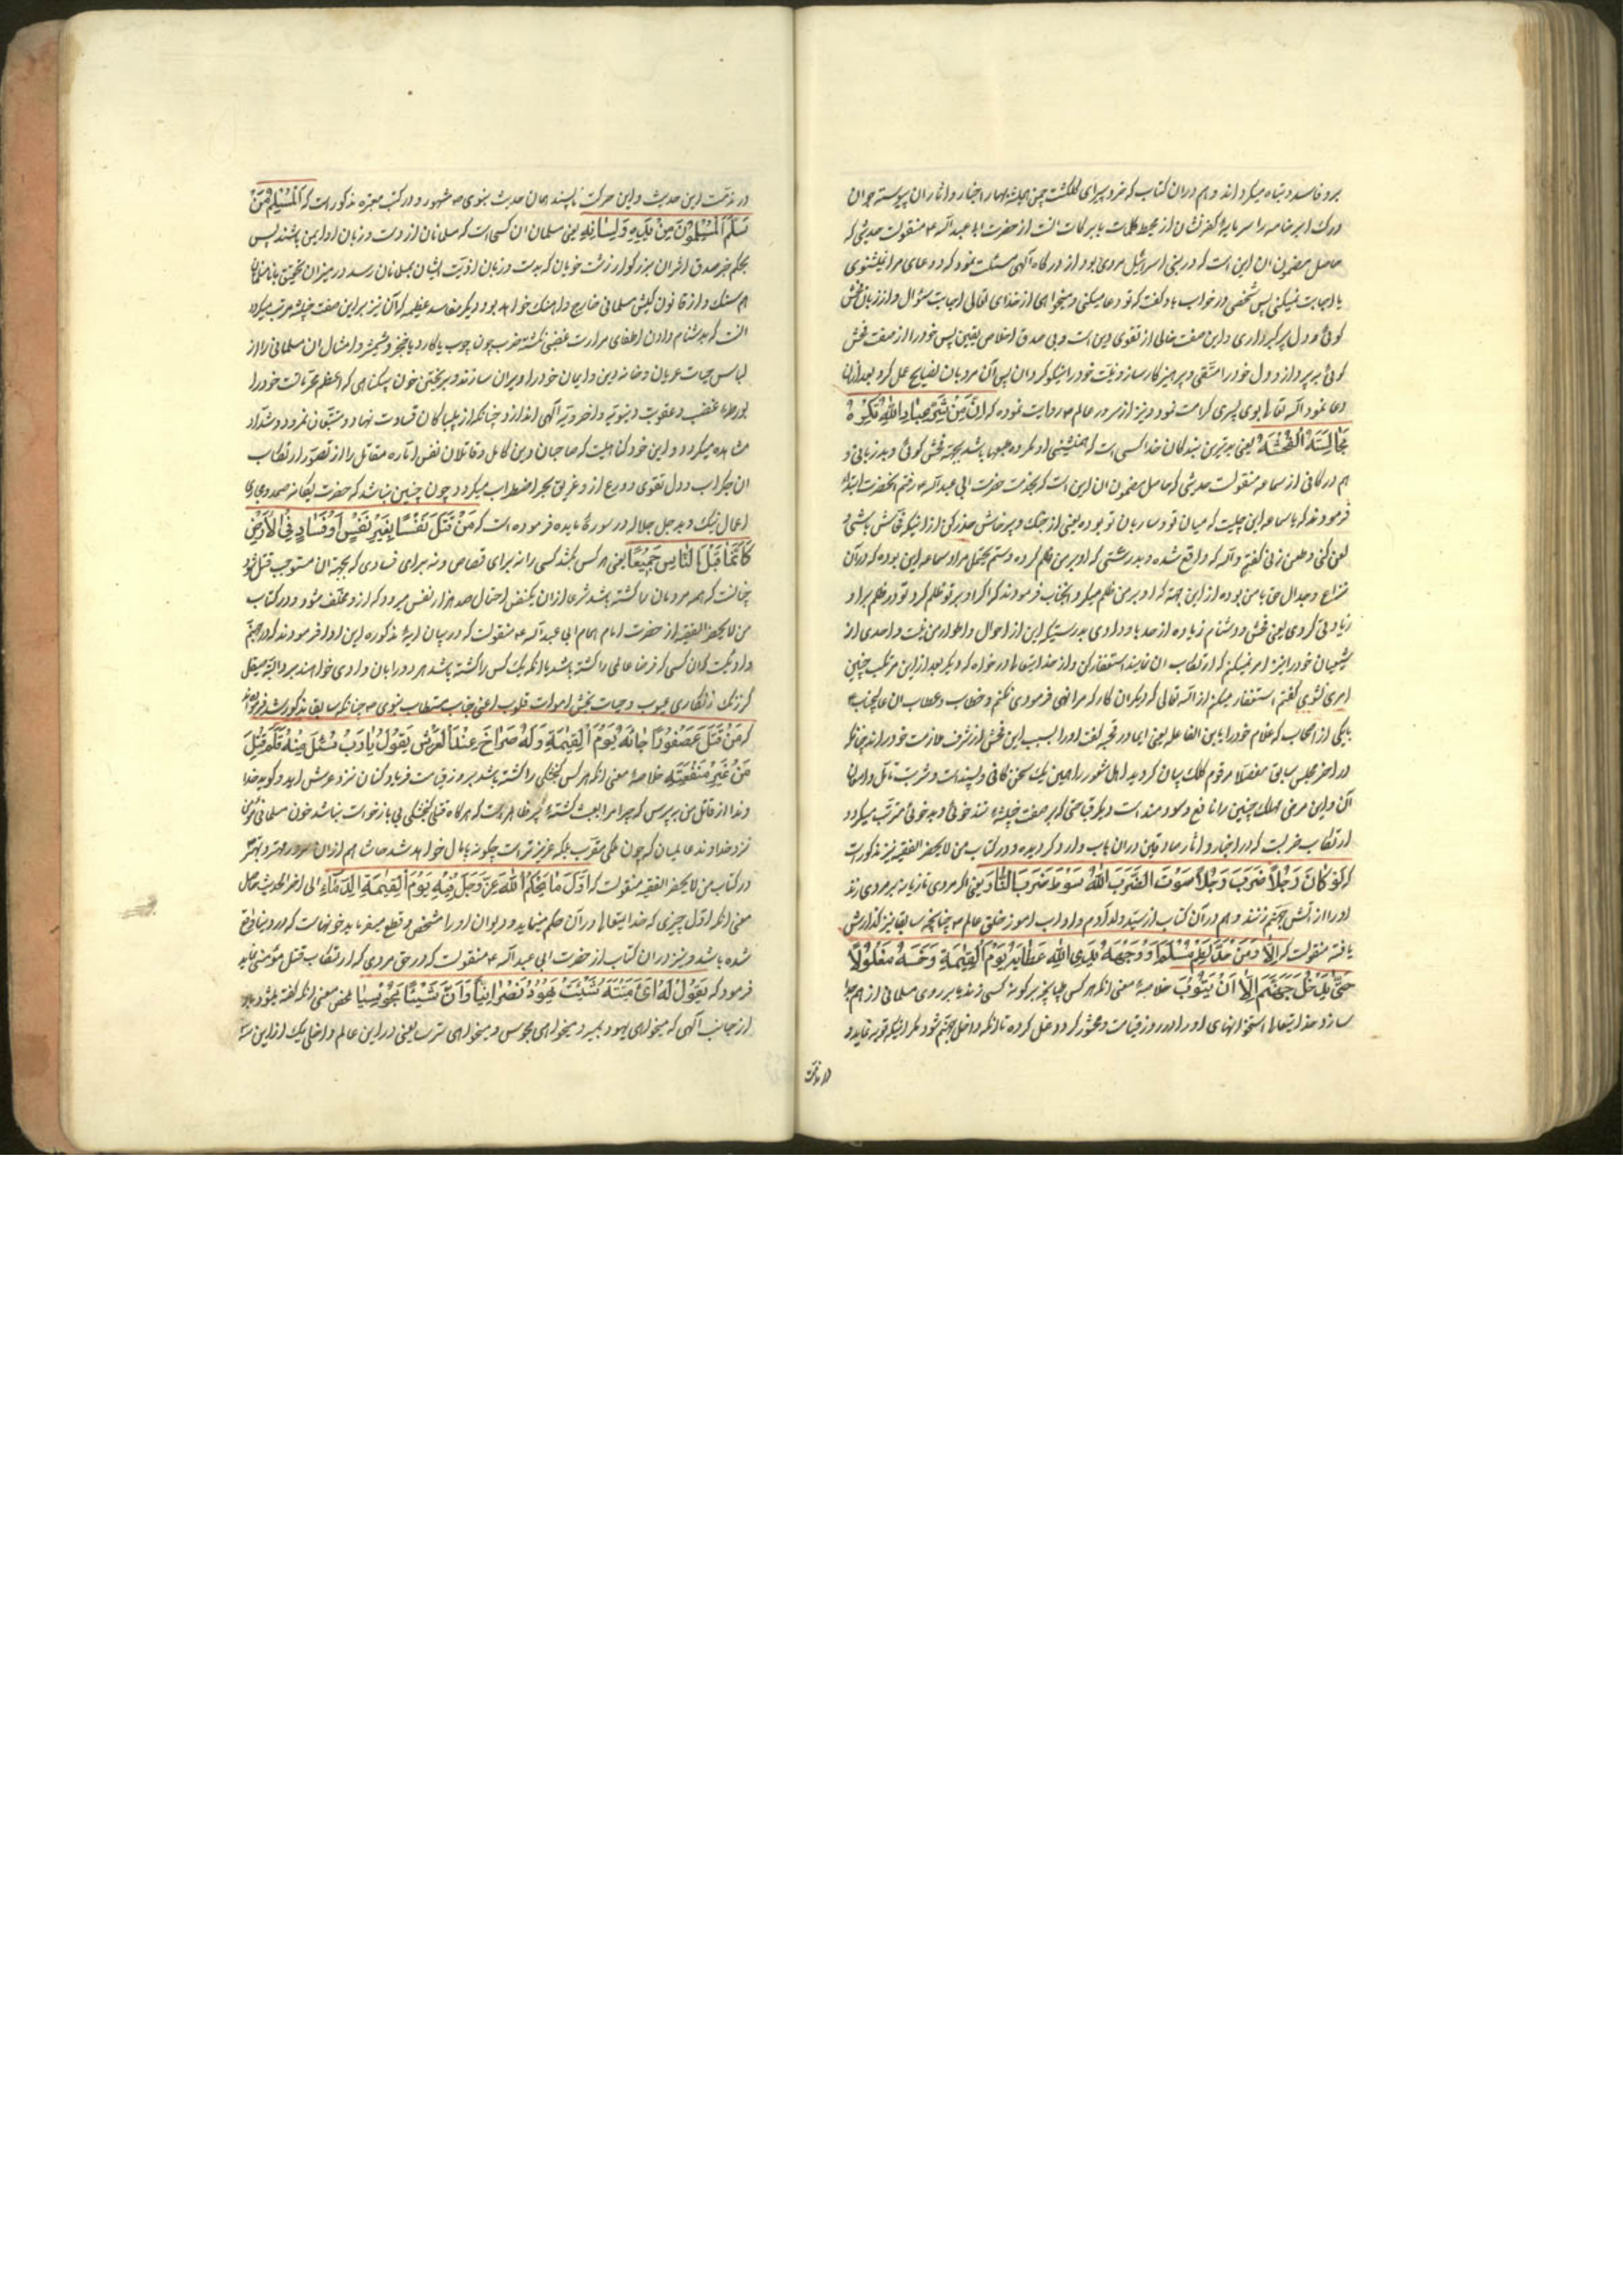 برو فاسد و تباه میکرداند و هم دران کتاب که خرد پیرای کلکشت چمن همیشه بهار اخبار و اثار ان پیوسته جو ان
و رک ابر خامه را سرمایهٔ کهرفشان از محیط کلمات با برکات انست از حضرت ابا عبد الله ع منقولست حدیثی که
حاصل مضمون ان این است که در بنی اسرائیل مردی بود از درکاه الهی مسئلت نمود که دعای مرا نمیشنوی
یا اجابت نمیکنی پس شخصی در خواب باو کفت که تو دعا میکنی و میخواهی از خدای تعالی اجابت سئوال و از زبان فحش
کوئی و دل پر کبر داری و این صفت خالی از تقوی است و بی صدق اخلاص یقین پس خود را از صفت فحش
کوئی بپرداز و دل خود را متقی و پرهیزکار ساز و نیت خود را نیکو کردان پس آن مرد بان نصایح عمل کرد بعد ازان
دعا نمود الله تعالی بوی پسری کرامت نمود و نیز از سرور عالم ص روایت نموده که اِنَّ مِنْ شَرِّ عِبٰادِ اللّٰهِ مَنْ تُکْرَهُ
مُجٰالَسَتُهُ لِفُحْشِهِ یعنی بدترین بندکان خدا کسی است که همنشینی او مکروه طبعها باشد بجهة فحش کوئی و بد زبانی و
هم در کافی از سماعه منقولست حدیثی که حاصل مضمون ان این است که بخدمت حضرت ابی عبد الله ع رفتم انحضرت ابتداء
فرمودند که یا سماعه این چیست که میان تو و ساربان تو بوده یعنی از جنک و پرخاش حذر کن از اینکه فحاش باشی و
لعن کنی و طعن زنی کفتم والله که واقع شده و بدرستی که او بر من ظلم کرده و ستم
نزاع و جدال حق با من بوده از این جهة که او بر من ظلم میکرد انجناب فرمودند که اکر او بر تو ظلم کرد تو در ظلم بر او
زیادتی کردی یعنی فحش و دشنام زیاده از حد باو دادی بدرستیکه این از احوال و اطوار من نیست و احدی از
شیعیان خود را نیز امر نمیکنم که ارتکاب ان نمایند استغفار کن و از خدایتعالی در خواه که دیکر بعد از این مرتکب چنین
امری نشوی کفتم استغفار میکنم از الله تعالی که دیکر ان کار که مرا نهی فرمودی نکنم و خطاب و عتاب ان عالیجناب
بایکی از اصحاب که غلام خود را یابن الفاعله یعنی ای مادر قحبه کفت او را بسبب این فحش از شرف ملازمت خود راند چنانکه
در اخر مجلس سابق مفصلا مرقوم کلک بیان کردید اهل شعور را همین یک سخن کافی و پسند است و شربت تامل و امعان
آن و این مرض مهلک چنین را نافع و سودمند است دیکر قباحتی که بر صفت خبیثهٔ تند خوئی و بد خوئی مترتب میکردد
ارتکاب ضربست که در اخبار و اثار صادقین دران باب وارد کردیده و در کتاب من لا یحضر الفقیه نیز مذکورست
که لَوْ کٰانَ رَجُلاً ضَرَبَ رَجُلاً سَوْطَ الضَّرْبَ اللّٰهُ سَوْطَ ضَرَبَ النّٰارِ یعنی اکر مردی تازیانه بر مردی زند
او را از اتش جهنم زنند و هم در آن کتاب از سید ولد آدم و ادا ب اموز خلق عالم ص چنانچه سابقا نیز کذارش
یافته منقولست که اَلاٰ وَمَنْ لَطَمَ مُسْلِمًا وَ وَجْهَهُ بَدَّدَی اللّٰهِ عِظٰامَهُ یَوْمَ الْقِیٰمَةِ وَ حَشَرَهُ مَغْلُوْلاً
حَتّٰی یَدْخُلَ جَهَنَّمَ اِلاّٰ اَنْ یَتُوْبَ خلاصهٔ معنی انکه هر کس طپانچه بر کونهٔ کسی زند یا بر روی مسلمانی از هم جدا
سازد خدایتعالی استخوانهای او را در روز قیامت و محشور کردد غل کرده تا انکه داخل جهنم شود مکر اینکه توبه نماید و
در مذمت
در مذمت این حدیث و این حرکت ناپسند همان حدیث نبوی ص مشهور و در کتب معتبره مذکور است که اَلْمُسْلِمُ مَنْ
سَلِمَ الْمُسْلِمُوْنَ مِنْ یَدِهِ وَ لِسٰانِهِ یعنی مسلمان ان کسی است که مسلمانان از دست و زبان او ایمن باشند پس
بحکم خبر صدق اثر ان بزرکوار زشت خویان که بدست و زبان اذیت ایشان بمسلمانان رسد در میزان
هم سنک و از قانون کیش مسلمانی خارج و اهنک خواهد بود و دیکر مفاسد عظیمه که آن نیز بر این صفت خبیثه مرتب میکردد
انست که بدشنام دادن اطفای حرارت غضبی نکشته ضرب چون چوب یا کارد یا خنجر و شمشیر و امثال ان مسلمانی را از
لباس حیات عریان و خانه دین و ایمان خود را ویران سازند و بریختن خون بیکناهی که اعظم محرمات است خود را
بورطهٔ غضب و عقوبت دنیویه و اخرویه الهی اندازد چنانکه از بیباکان قساوت نهاد و متتبعان نمرود و شداد
مشاهده میکردد و این خود کناهیست که صاحبان دین کامل و عاقلان نفس اماره مقاتل را از تصور ارتکاب
ان جکر اب و دل تقوی و ورع ازو غریق بحر اضطراب میکردد چون چنین نباشد که حضرت یکانه صمد و مجازی
اعمال نیک و بد جل جلاله در سورهٔ مایده فرموده است که مَنْ قَتَلَ نَفْسًا بِغَیْرِ نَفْسٍ اَوْ فَسٰادٍ فِی الْاَرْضِ
کَاَنَّمٰا قَتَلَ النّٰاسَ جَمِیْعًا یعنی هر کس بکشد کسی را نه برای قصاص و نه برای فسادی که بجهة ان مستوجب قتل شود
چنانست که همه مردمان را کشته باشد
من لا یحضر الفقیه از حضرت امام همام ابی عبد الله ع منقولست که در بیان ایهٔ مذکوره این ادا فرمودند که در جهنم
وادیست که ان کسی که فرضا عالمی را کشته باشد یا انکه یک کس را کشته باشد هر دو را بان وادی خواهند برد و البته صیقل
کر زنک زنکاری عیوب و حیات بخش اموات قلوب اعنی جناب مستطاب نبوی ص چنانکه سابقا مذکور شد فرموده اند
که مَنْ قَتَلَ عُصْفُوْرًا جٰائَهُ یَوْمَ الْقِیٰمَةِ وَ لَهُ صُرٰاخٌ عِنْدَ الْعَرْشِ یَقُوْلُ یٰا رَبِّ سْئَلْ مِنْهُ فَلِمَ قَتَلَ
مَنْ غَیْرِ مَنْفَعَتِهِ خلاصهٔ معنی انکه هر کس کنجشکی را کشته باشد بروز قیامت فریاد کنان نزد عرش اید و کوید خدا
وندا از قاتل من بپرس که چرا مرا بعبث کشته پر ظاهر است که هر کاه قتل کنجشکی بی بازخواست نباشد خون مسلمانی که
نزد خداوند عالمیان که چون ملکی مقرب بلکه عزیزتر است چکونه پامال خواهد شد حاشا هم ازان سرور و مهتر و بهتر
در کتاب من لا یحضر الفقیه منقولست که اَوَّلَ مٰا یَحْکُمُ اللّٰهُ عَزَّ وَ جَلَّ فِیْهِ یَوْمَ الْقِیٰمَةِ الدِّمٰٓاءَ الی اخر الحدیث حاصل
معنی انکه اول چیزی که خدایتعالی در آن حکم مینماید و دیوان او را مشخص و قطع میفرماید خونهاست که در دنیا واقع
شده باشد و نیز در ان کتاب از حضرت ابی عبد الله ع منقولست که در حق مردی که ارتکاب قتل مؤمنی نماید
فرمود که یَقُوْلُ لَهُ اَیَّ مِیْتَةٍ شِئْتَ یَهُوْدِ نَصْرٰانِیًّا وَ اَنَّ شِئْتًا مَجُوْسِیًا محض معنی انکه کفته میشود باو
از جانب الهی که میخواهی یهود بمیر و میخواهی مجوس و میخواهی ترسا یعنی در این عالم داخل یک از این سه